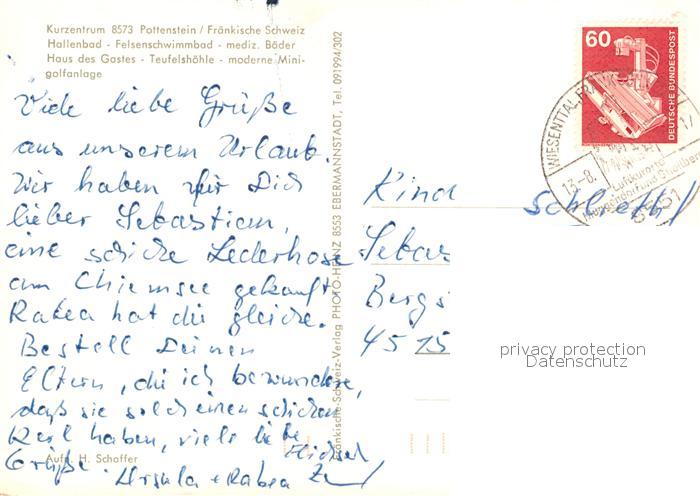 Kurzentrum 8573 Pottenstein / Fränkische Schweiz
Hallenbad - Felsenschwimmbad - mediz. Bäder
Haus des Gastes - Teufelshöhle - moderne Mini-
golfanlage
Viele liebe Grüße
aus unserem Urlaub.
Wir haben für Dich
lieber Sebastian,
eine schicke Lederhose
am Chiemsee gekauft
Rabea hat die gleiche.
Bestell Deinen
Eltern, die ich bewundere,
daß sie solch einen schicken
Kerl haben, viele liebe
Grüße. Michael
Ursula + Rabea
Aufn. H. Schaffer
Fränkische-Schweiz-Verlag PHOTO-HEINZ 8553 EBERMANNSTADT, Tel. 091994/302
60
DEUTSCHE BUNDESPOST
WIESENTTAL
13-8.
Luftkurorte
Kind
Sebas
Bergs
4515
privacy protection
Datenschutz